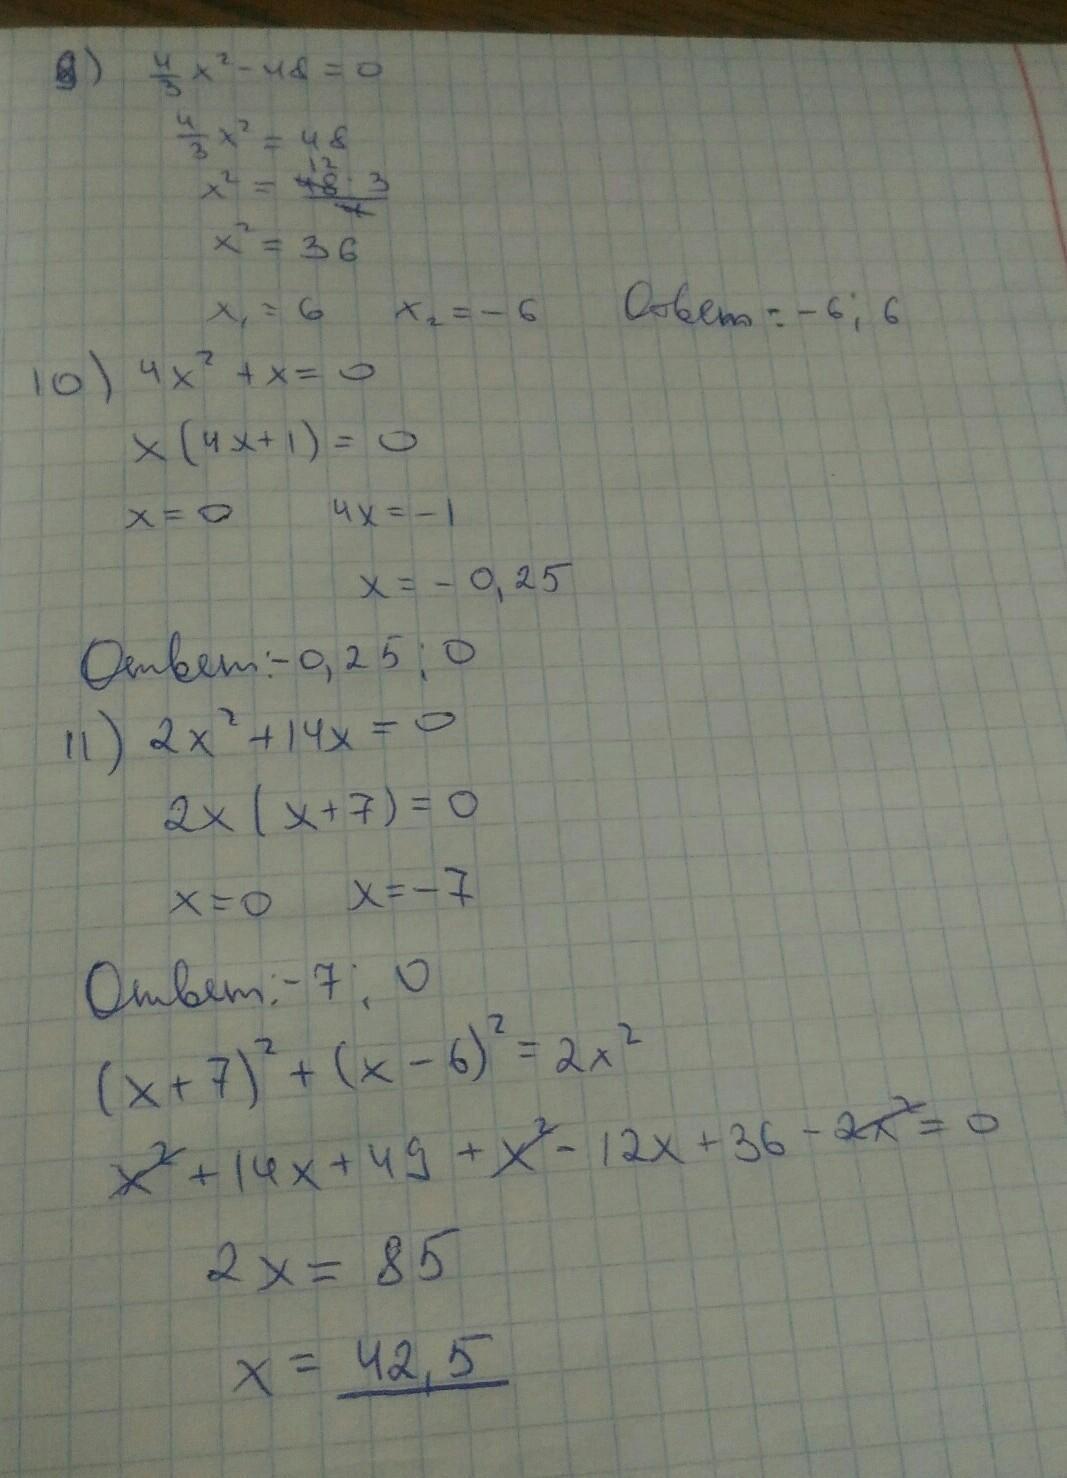 9) 4/3 x² - 48 = 0
4/3 x² = 48
x² = 48 · 3 / 4
x² = 36
x₁ = 6 x₂ = -6 Ответ: -6; 6
10) 4x² + x = 0
x(4x+1) = 0
x = 0 4x = -1
x = -0,25
Ответ: -0,25; 0
11) 2x² + 14x = 0
2x(x+7) = 0
x = 0 x = -7
Ответ: -7; 0
(x+7)² + (x-6)² = 2x²
x² + 14x + 49 + x² - 12x + 36 - 2x² = 0
2x = 85
x = 42,5